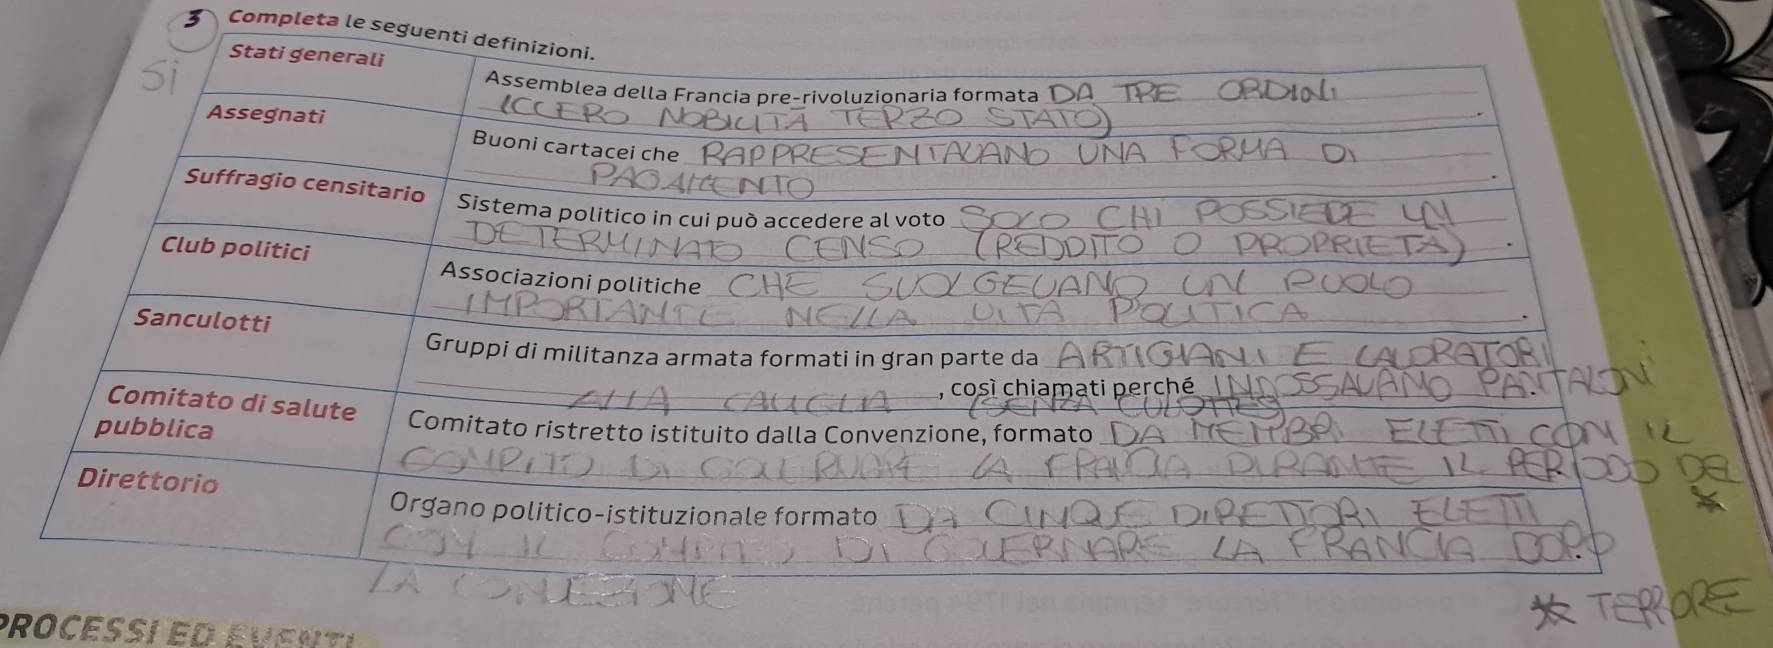 3 Completa le seguenti definizioni.
Si
Stati generali
Assemblea della Francia pre-rivoluzionaria formata DA TRE ORDINI
(CLERO NOBILTÀ TERZO STATO).
Assegnati
Buoni cartacei che RAPPRESENTAVANO UNA FORMA DI
PAGAMENTO.
Suffragio censitario
Sistema politico in cui può accedere al voto SOLO CHI POSSIEDE UN
DETERMINATO CENSO (REDDITO O PROPRIETÀ).
Club politici
Associazioni politiche CHE SVOLGEVANO UN RUOLO
IMPORTANTE NELLA VITA POLITICA.
Sanculotti
Gruppi di militanza armata formati in gran parte da ARTIGIANI E LAVORATORI
ALLA, così chiamati perché INDOSSAVANO PANTALONI
(SENZA CULOTTES)
Comitato di salute
pubblica
Comitato ristretto istituito dalla Convenzione, formato DA MEMBRI ELETTI CON IL
COMPITO DI GOVERNARE LA FRANCIA DURANTE IL PERIODO DEL *
Direttorio
Organo politico-istituzionale formato DA CINQUE DIRETTORI ELETTI
CON IL COMPITO DI GOVERNARE LA FRANCIA DOPO
LA
* TERRORE
PROCESSI ED EVENTI